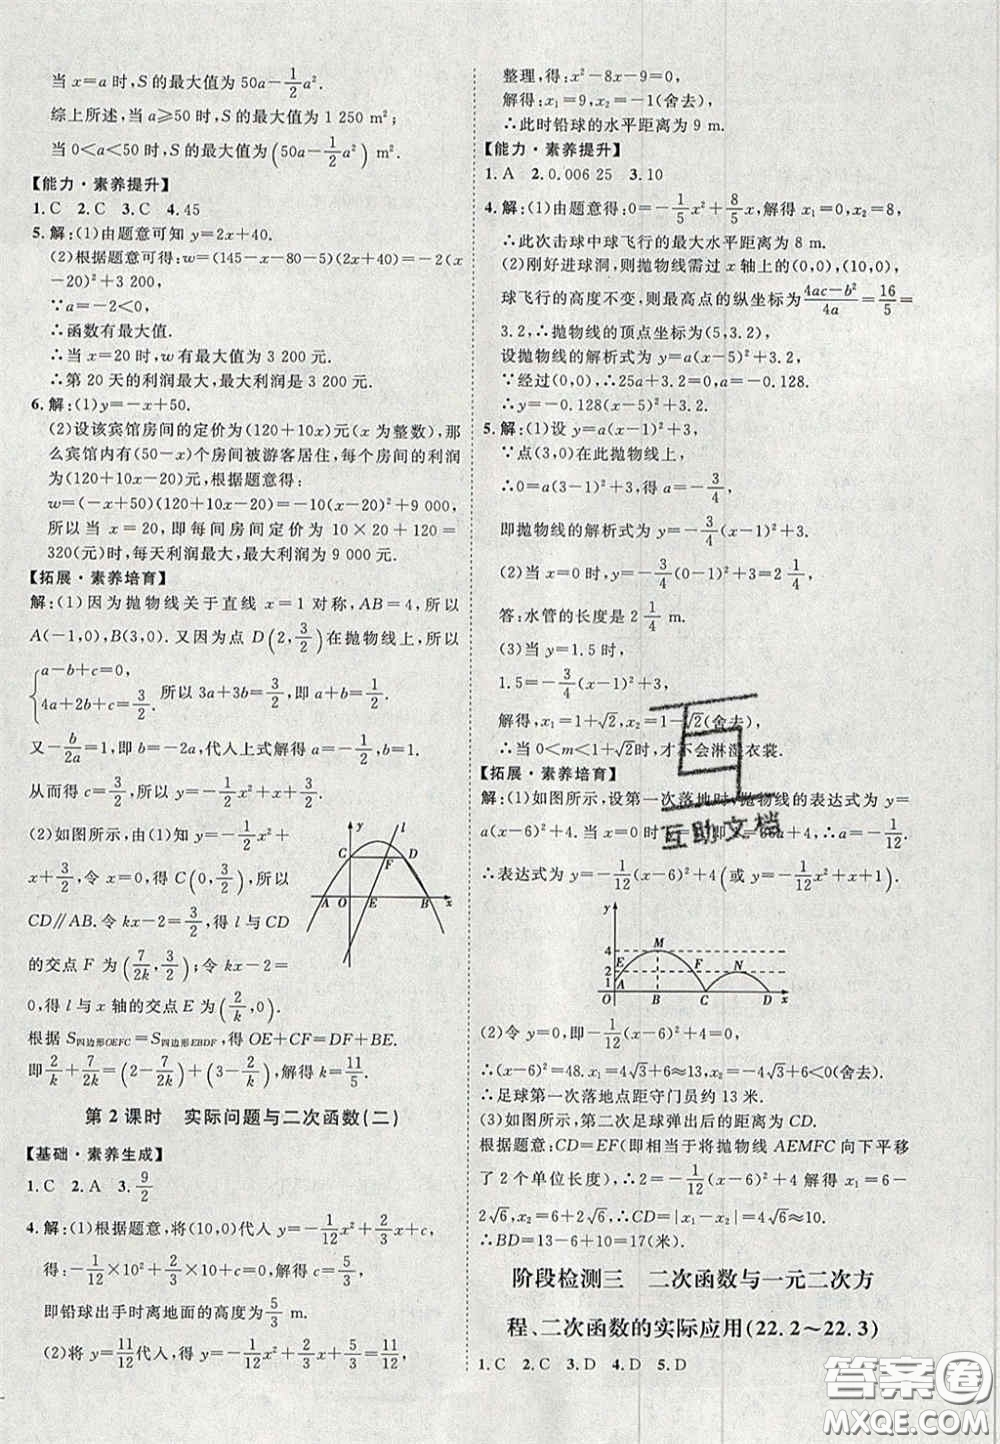 当 x=a 时,S 的最大值为 50a-1/2a².
综上所述,当 a⩾50 时,S 的最大值为 1 250 m²;
当 0<a<50 时,S 的最大值为(50a-1/2a²) m².
【能力·素养提升】
1.C 2.C 3.C 4.45
5.解:(1)由题意可知 y=2x+40.
(2)根据题意可得:w=(145-x-80-5)(2x+40)=-2(x
-20)²+3 200,
∵a=-2<0,
∴函数有最大值.
∴当 x=20 时,w 有最大值为 3 200 元.
∴第 20 天的利润最大,最大利润是 3 200 元.
6.解:(1)y=-x+50.
(2)设该宾馆房间的定价为(120+10x)元(x 为整数),那
么宾馆内有(50-x)个房间被游客居住,每个房间的利润
为(120+10x-20)元,根据题意得:
w=(-x+50)(120+10x-20)=-10(x-20)²+9 000,
所以当 x=20,即每间房间定价为 10×20+120=
320(元)时,每天利润最大,最大利润为 9 000 元.
【拓展·素养培育】
解:(1)因为抛物线关于直线 x=1 对称,AB=4,所以
A(-1,0),B(3,0).又因为点 D(2,3/2)在抛物线上,所以
{a-b+c=0, 4a+2b+c=3/2. 所以 3a+3b=3/2,即 a+b=1/2.
又-b/2a=1,即 b=-2a,代人上式解得 a=-1/2,b=1.
从而得 c=3/2.
(2)如图所示,由(1)可得 y=-1/2x²+
x+3/2,令 x=0,得 C(0,3/2),所以
CD∥AB.令 kx-2=3/2,得 l 与 CD
的交点 F 为(7/2k,3/2);令 kx-2=
0,得 l 与 x 轴的交点 E 为(2/k,0).
y l C D F A O E B x
根据 S四边形OEFC=S四边形EBDF,得 OE+CF=DF+BE.
即 2/k+7/2k=(2-7/2k)+(3-2/k),解得 k=11/5.
第 2 课时 实际问题与二次函数(二)
【基础·素养生成】
1.C 2.A 3.9/2
4.解:(1)根据题意,将(10,0)代人 y=-1/12x²+2/3x+c,
得:-1/12×10²+2/3×10+c=0,解得 c=5/3,
即铅球出手时离地面的高度为5/3 m.
(2)将 y=11/12代人,得:-1/12x²+2/3x+5/3=11/12,
整理,得:x²-8x-9=0,
解得:x₁=9,x₂=-1(舍去),
∴此时铅球的水平距离为 9 m.
【能力·素养提升】
1.A 2.0.006 25 3.10
4.解:(1)由题意得:0=-1/5x²+8/5x,解得 x₁=0,x₂=8,
∴此次击球中球飞行的最大水平距离为 8 m.
(2)刚好进球洞,则抛物线需过 x 轴上的(0,0),(10,0),
球飞行的高度不变,则最高点的纵坐标为(4ac-b²)/4a=16/5=
3.2,∴抛物线的顶点坐标为(5,3.2),
设抛物线的解析式为 y=a(x-5)²+3.2,
∵经过(0,0),∴25a+3.2=0,a=-0.128.
∴y=-0.128(x-5)²+3.2.
5.解:(1)设 y=a(x-1)²+3,
∵点(3,0)在此抛物线上,
∴0=a(3-1)²+3,得 a=-3/4,
即抛物线的解析式为 y=-3/4(x-1)²+3.
(2)当 x=0 时,y=-3/4(0-1)²+3=9/4,
答:水管的长度是 2 1/4 m.
(3)当 y=1.5 时,
1.5=-3/4(x-1)²+3,
解得,x₁=1+√2,x₂=1-√2(舍去),
∴当 0<m<1+√2时,才不会淋湿衣裳.
【拓展·素养培育】
解:(1)如图所示,设第一次落地时,抛物线的表达式为 y=
a(x-6)²+4,当 x=0 时 y=1,即 36a+4=1,∴a=-1/12.
∴表达式为 y=-1/12(x-6)²+4(或 y=-1/12x²+x+1).
y 4 M 2 E F N 1 A O B C D x
(2)令 y=0,即-1/12(x-6)²+4=0,
∴(x-6)²=48.x₁=4√3+6≈13,x₂=-4√3+6(舍去).
∴足球第一次落地点距守门员约 13 米.
(3)如图所示,第二次足球弹出后的距离为 CD,
根据题意:CD=EF(即相当于将抛物线 AEMFC 向下平移
了 2 个单位长度),∴2=-1/12(x-6)²+4 解得 x₁=6-
2√6,x₂=6+2√6,∴CD=|x₁-x₂|=4√6≈10(米).
∴BD=13-6+10=17(米).
阶段检测三 二次函数与一元二次方
程、二次函数的实际应用(22.2~22.3)
1.C 2.C 3.D 4.D 5.D
互助文档
答案圈
MXQE.COM